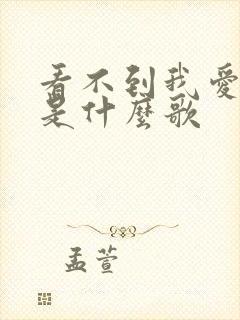 看不到我愛
是什麼歌
孟萱